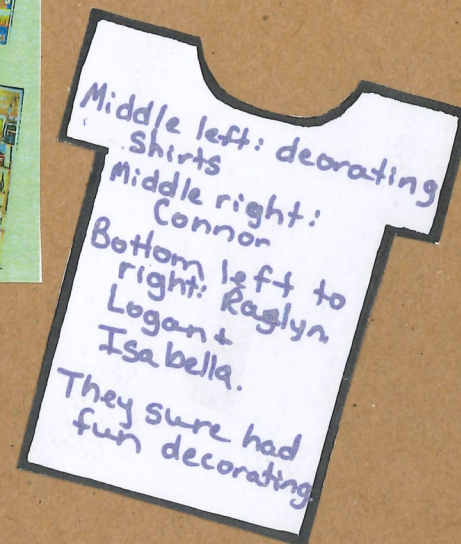 Middle left: deorating
Shirts
Middle right:
Connor
Bottom left to
right: Raglyn,
Logan &
Isabella.
They sure had
fun decorating